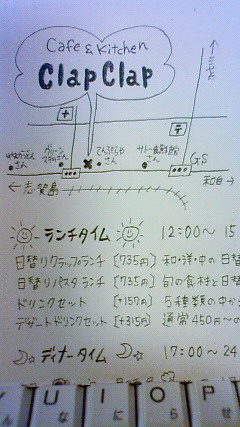 Cafe & Kitchen
Clap Clap
三苫
〒
てんぷらや
さん
さん
さん
さん
GS
←志賀島
和白→
ランチタイム 12:00〜 15
日替りクラップランチ [735円] 和・洋・中の日替
日替りパスタランチ [735円] 旬の食材と日替
ドリンクセット [+157円] 5種類の中か
デザートドリンクセット [+315円] 通常450円〜の
ディナータイム 17:00〜 24
U I O P
な に ら せ